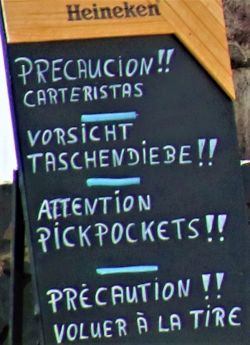 Heineken
PRECAUCION!!
CARTERISTAS
VORSICHT
TASCHENDIEBE!!
ATTENTION
PICKPOCKETS!!
PRÉCAUTION!!
VOLUER À LA TIRE